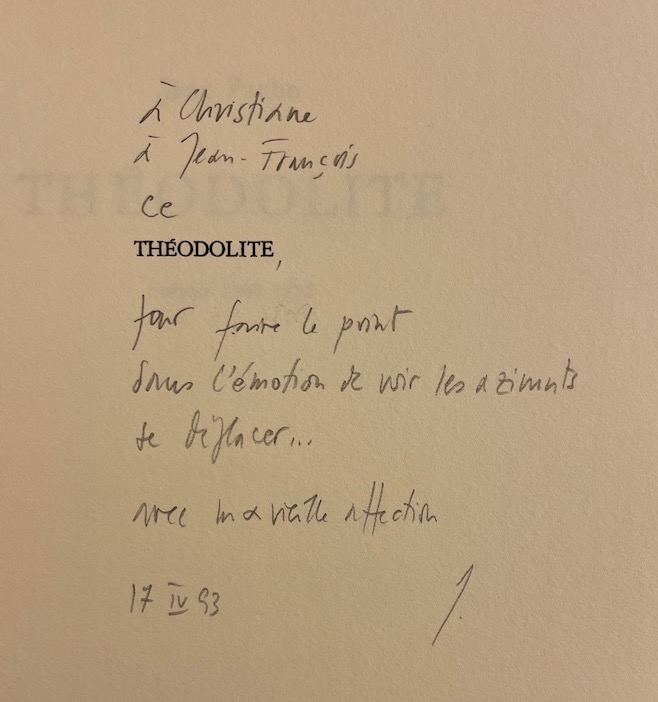 à Christiane
à Jean-François
ce
THÉODOLITE,
pour faire le point
dans l'émotion de voir les azimuts
se déplacer...
avec ma vieille affection
17 IV 93
J.